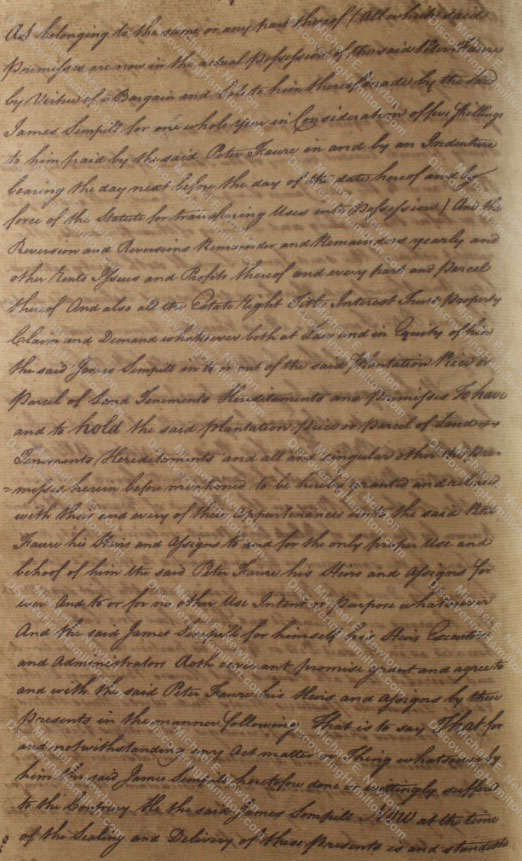 As belonging to the same or any part thereof (All which said
Premisses are now in the actual Possession of the said Peter Faure
by Virtue of a Bargain and Sale to him thereof made by the said
James Sempill for one whole Year in Consideration of five Shillings
to him paid by the said Peter Faure in and by an Indenture
bearing the day next before the day of the date hereof and by
force of the Statute for transfering Uses into Possessions) And the
Reversion and Reversions Remainder and Remainders yearly and
other Rents Issues and Profits thereof and every part and Parcel
thereof And also all the Estate Right Title Interest Trust Property
Claim and Demand whatsoever both at Law and in Equity of him
the said James Sempill in to or out of the said Plantation Piece or
Parcel of Land Tenements Hereditaments and Premisses To have
and to hold the said Plantation Piece or Parcel of Land
Tenements Hereditaments and all and singular other the Pre-
=misses herein before mentioned to be hereby granted and released
with their and every of their Appurtenances unto the said Peter
Faure his Heirs and Assigns to and for the only proper Use and
behoof of him the said Peter Faure his Heirs and Assigns for
ever And to or for no other Use Intent or Purpose whatsoever
And the said James Sempill for himself his Heirs Executors
and Administrators doth covenant promise grant and agree to
and with the said Peter Faure his Heirs and Assigns by these
Presents in the manner following That is to say That for
and notwithstanding any Act matter or Thing whatsoever by
him the said James Sempill heretofore done or wittingly suffered
to the Contrary He the said James Sempill Now at the time
of the Sealing and Delivery of these Presents is and standeth